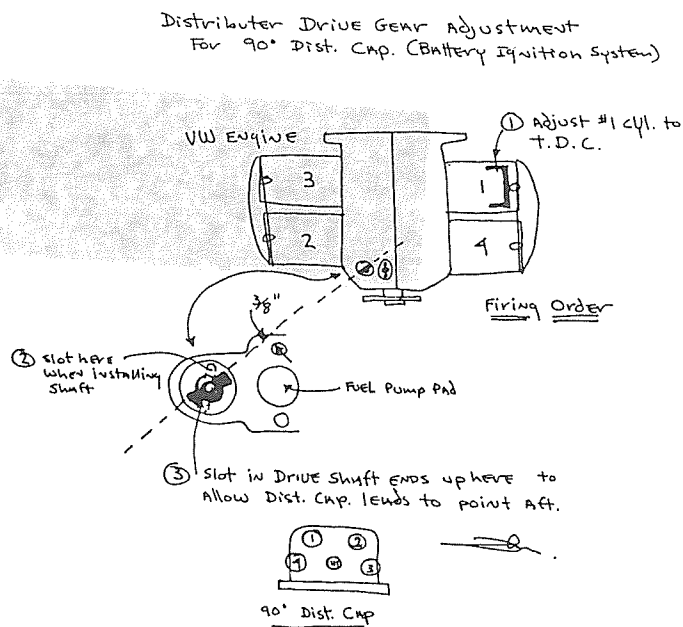 Distributer Drive Gear Adjustment
For 90° Dist. Cap. (Battery Ignition System)
① Adjust #1 cyl. to
T.D.C.
VW Engine
3
1
2
4
Firing Order
3/8"
② Slot here
when installing
shaft
Fuel Pump Pad
③ Slot in Drive Shaft ends up here to
Allow Dist. Cap. leads to point Aft.
1 2
4 3
90° Dist. Cap